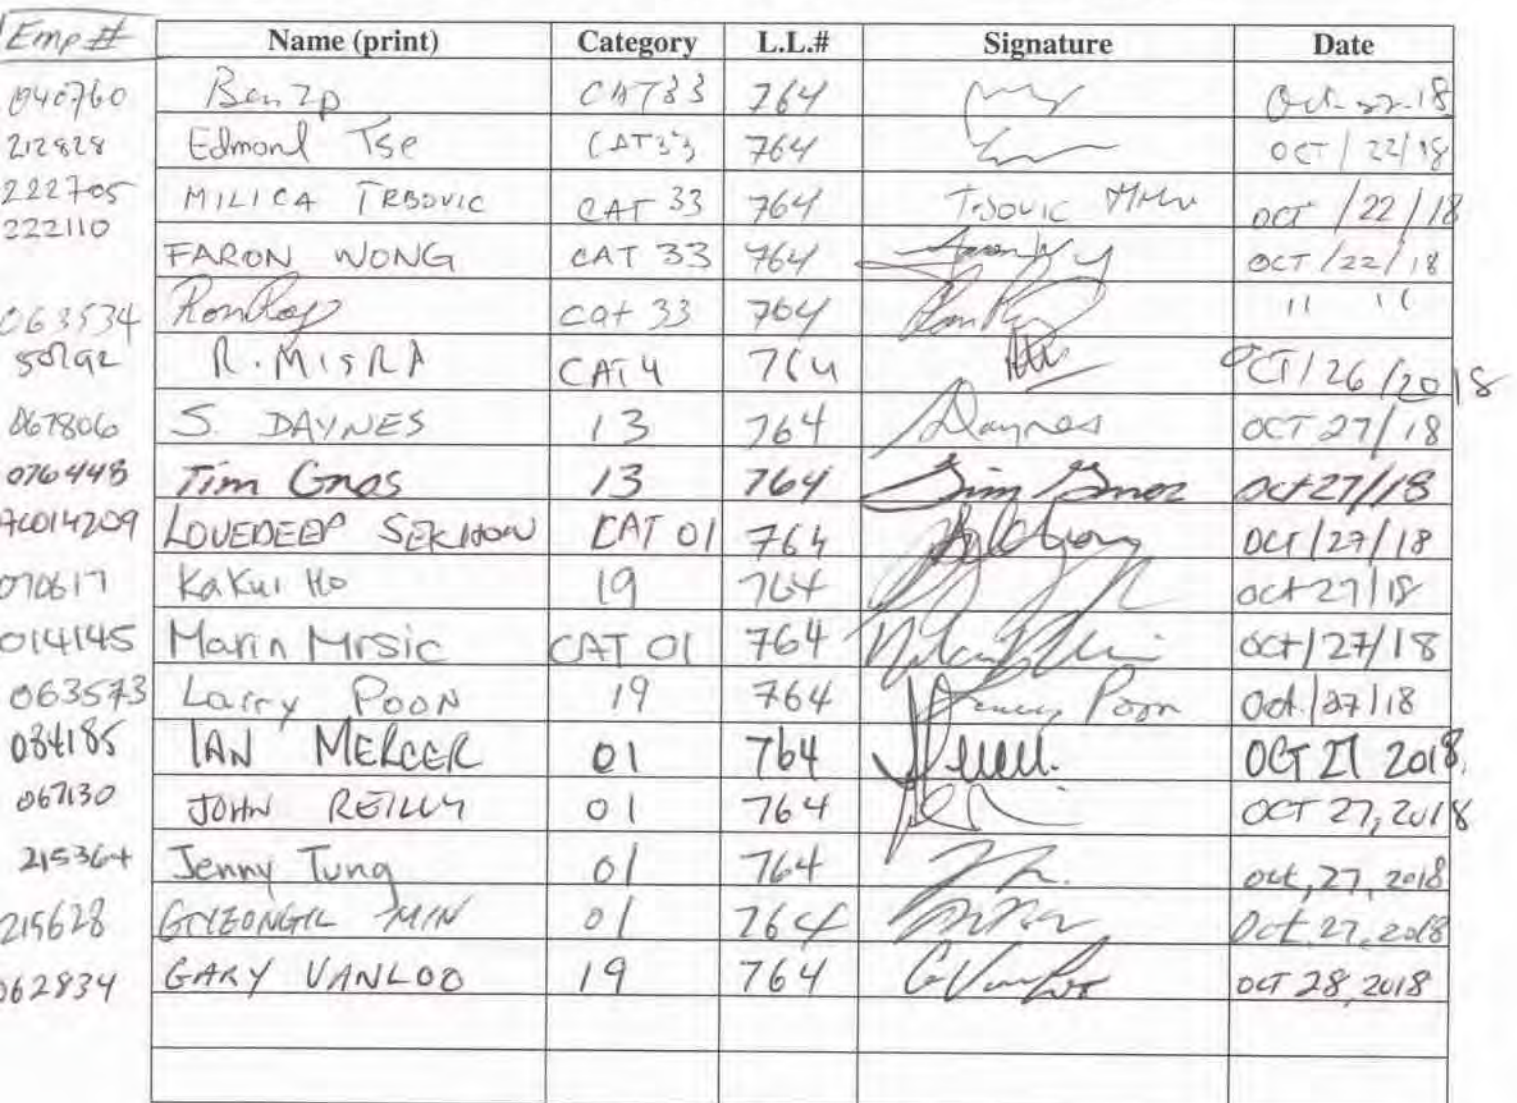 Emp # Name (print) Category L.L.# Signature Date
040760 Ben Zp CAT33 764 Oct-22-18
212828 Edmond Tse CAT33 764 OCT/22/18
222705 MILICA TRBOVIC CAT 33 764 OCT/22/18
222110 FARON WONG CAT 33 764 OCT/22/18
063534 Ron Roy Cat 33 764 " "
R. MISRA CAT 4 764 OCT/26/2018
067806 S. DAYNES 13 764 Daynes OCT 27/18
076448 Tim Gnos 13 764 Tim Gnos Oct 27/18
AC014209 LOVEDEEP SEKHON CAT 01 764 OCT/27/18
070617 Ka Kui Ho 19 764 Oct 27/18
014145 Marin Mrsic CAT 01 764 Oct/27/18
063573 Larry POON 19 764 Poon Oct./27/18
084185 IAN MERCER 01 764 OCT 27 2018.
067130 JOHN REILLY 01 764 OCT 27, 2018
215364 Jenny Tung 01 764 Oct, 27, 2018
215628 GYEONGIL MIN 01 764 Oct. 27, 2018
062834 GARY VANLOO 19 764 G Vanloo OCT 28, 2018